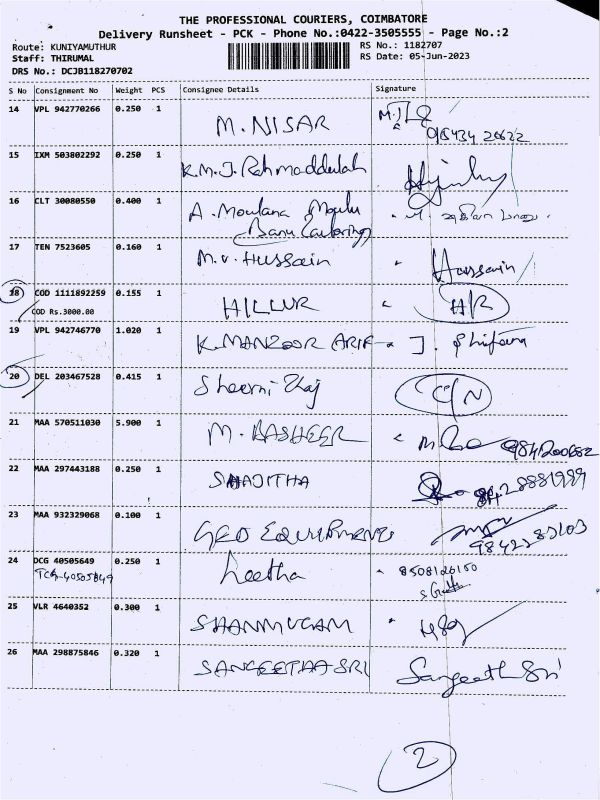 THE PROFESSIONAL COURIERS, COIMBATORE
Delivery Runsheet - PCK - Phone No.:0422-3505555 - Page No.:2
Route: KUNIYAMUTHUR RS No.: 1182707
Staff: THIRUMAL RS Date: 05-Jun-2023
DRS No.: DCJB118270702
S No Consignment No Weight PCS Consignee Details Signature
14 VPL 942770266 0.250 1 M. NISAR
15 IXM 503802292 0.250 1 K.M.J. Rahmaddulah
16 CLT 30080550 0.400 1 A. Moulana
Banu
17 TEN 7523605 0.160 1 M.V. HUSSain Hussain
18 COD 1111892259 0.155 1 HILLUR H/R
COD Rs.3000.00
19 VPL 942746770 1.020 1 K. MANZOOR ARIF J. Shifana
20 DEL 203467528 0.415 1 C/N
21 MAA 570511030 5.900 1 M. BASHEER
22 MAA 297443188 0.250 1 SHAJITHA
23 MAA 932329068 0.100 1 GEO EQUIPMENTS
24 DCG 40505649 0.250 1 Leetha 8508126150
25 VLR 4640352 0.300 1 SHANMUGAM
26 MAA 298875846 0.320 1 SANGEETHA SRI Sangeetha Sri
2